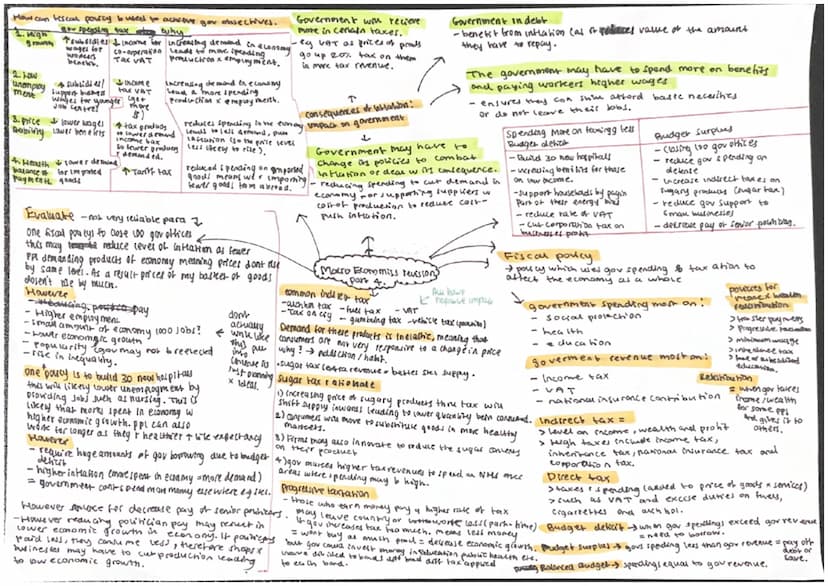 How can fiscal policy be used to achieve gov objectives.
gov spending
tax
why
1. High growth
↑ subsidies
wages for workers
benefits.
↓ income tax
co-operation
Tax VAT
increasing demand in economy
leads to more spending
production & employment.
2. Low unemployment
↑ subsidies/
support businesses
wages for younger
Job centres
↓ income
tax
VAT
increasing demand in economy
lead a more spending
production & employment.
3. Price stability
↓ lower wages
lower benefits
↑ tax products
to lower demand
income tax
to fewer products
demanded.
reduces spending in the economy
leads to less demand, pum
inflation (so the price level
less likely to rise).
4. Health
balance of
payment
↓ lower demand
for imported
goods
↑ Tariff tax
reduced spending on imported
goods means we r importing
fewer goods from abroad.
Government will recieve
more in certain taxes.
- eg VAT as prices of goods
go up 20% tax on them
is more tax revenue.
Government in debt
- benefit from inflation (as it reduces value of the amount
they have to repay.
The government may have to spend more on benefits
and paying workers higher wages
- ensures they can still afford basic necessities
or do not leave their jobs.
consequences of inflation:
impact on government
Government may have to
change as policies to combat
inflation or deal w its consequence.
- reducing spending to cut demand in
economy - or supporting suppliers w
cost of production to reduce cost-
push inflation.
Spending more on taxing less
Budget deficit
- Build 30 new hospitals
- increasing benefits for those
on low income.
- support households by payin
part of their energy bills
- reduce rate of VAT
- cut corporation tax on
businesses profit
Budget surplus
- closing 100 gov offices
- reduce gov spending on
defense
- increase indirect taxes on
sugary products (sugar tax)
- reduce gov support to
small businesses
- decrease pay of senior politicians.
Macro Economics revision
part 4.
Evaluate - not very reliable para ↓
One fiscal policy is to close 100 gov offices
this may reduce level of inflation as fewer
ppl demanding products of economy meaning prices dont rise
by same level. As a result prices of my basket of goods
doesn't rise by much.
However
- Higher employment
- small amount of economy 1000 jobs?
- lower economic growth
- popularity (gov may not be reelected
- rise in inequality.
dont
actually
write like
this put
into
sentences
just planning
& ideas.
One policy is to build 30 new hospitals
this will likely lower unemployment by
providing jobs such as nursing. This is
likely that more ppl spent in economy w
higher economic growth. ppl can also
work for longer as they r healthier ↑ life expectancy
However
- require huge amounts of gov borrowing due to budget
deficit
- higher inflation (more spent in economy = more demand)
= government cant spend more money elsewhere eg sser.
However
- However reducing politician pay may result in
lower economic growth in economy. If politicians
paid less, they consume less, therefore shops &
businesses may have to cut production leading
to low economic growth.
common indirect tax
- fuel tax
- VAT
- gambling tax
All have
negative impact
Demand for these products is inelastic, meaning that
consumers are not very responsive to a change in price
why? → addiction/habit.
- sugar tax = extra revenue = better S&S supply.
sugar tax rationale
1) Increasing price of sugary products thru tax will
shift supply inwards leading to lower quantity being consumed.
2) Consumers will move to substitute goods in more healthy
markets.
3) Firms may also innovate to reduce the sugar content
on their product
4) gov raises higher tax revenues to spend on NHS once
areas where spending may be high.
progressive taxation
- those who earn money pay a higher rate of tax
may leave country or work less (part-time)
if gov increases tax too much. means less money
= wont buy as much prod = decrease economic growth.
but gov could invest money in education public health etc
Fiscal policy
→ policy which uses gov spending & taxation to
affect the economy as a whole
government spending most on:
- social protection
- health
- education
goverment revenue most on:
- income tax
- VAT
- national insurance contribution
policies for
income & wealth
redistribution
> progressive taxation
> minimum wage
> inheritance tax
education.
Redistribution
= when gov takes
income/wealth
for some ppl
and gives it to
others.
Indirect tax =
> level on income, wealth and profit
> teigh taxes include income tax,
inheritance tax, national insurance tax and
corporation tax.
Direct tax
> taxes ↑ spending (added to price of goods & services)
> such as VAT and excise duties on fuels,
cigarettes and alchol.
Budget deficit → when gov spendings exceed gov revenue
= need to borrow.
Budget surplus = gov spending less than gov revenue = pay off
debt or
save.
Balanced Budget → spending equal to gov revenue.